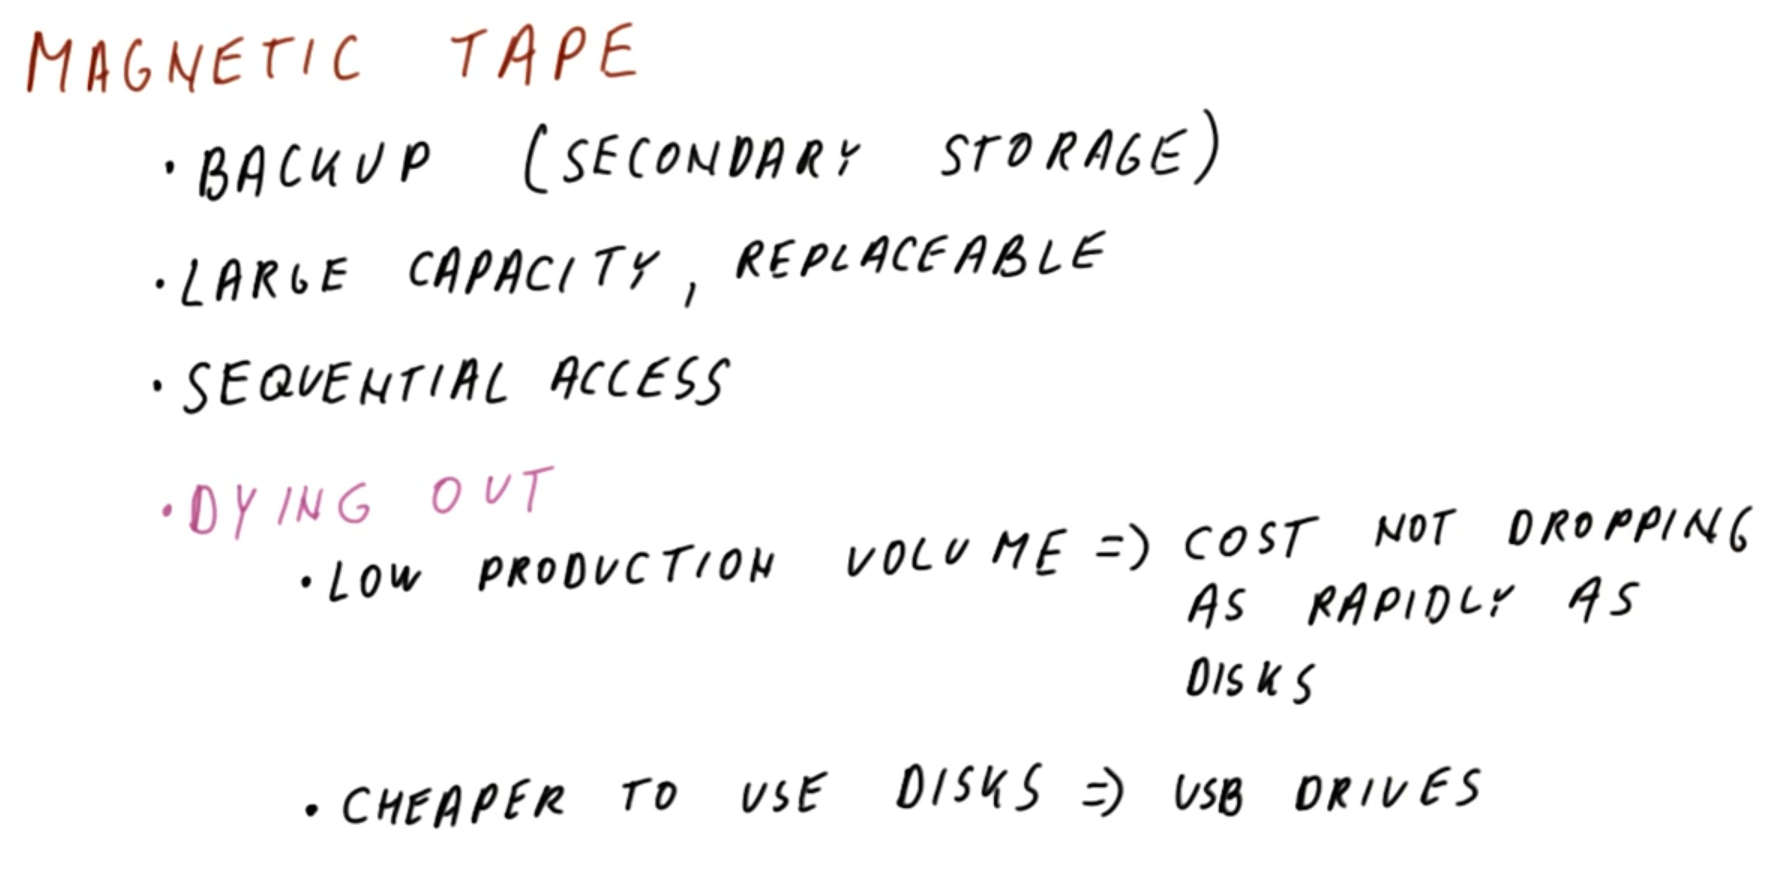 MAGNETIC TAPE
· BACKUP (SECONDARY STORAGE)
· LARGE CAPACITY, REPLACEABLE
· SEQUENTIAL ACCESS
· DYING OUT
· LOW PRODUCTION VOLUME => COST NOT DROPPING
AS RAPIDLY AS
DISKS
· CHEAPER TO USE DISKS => USB DRIVES